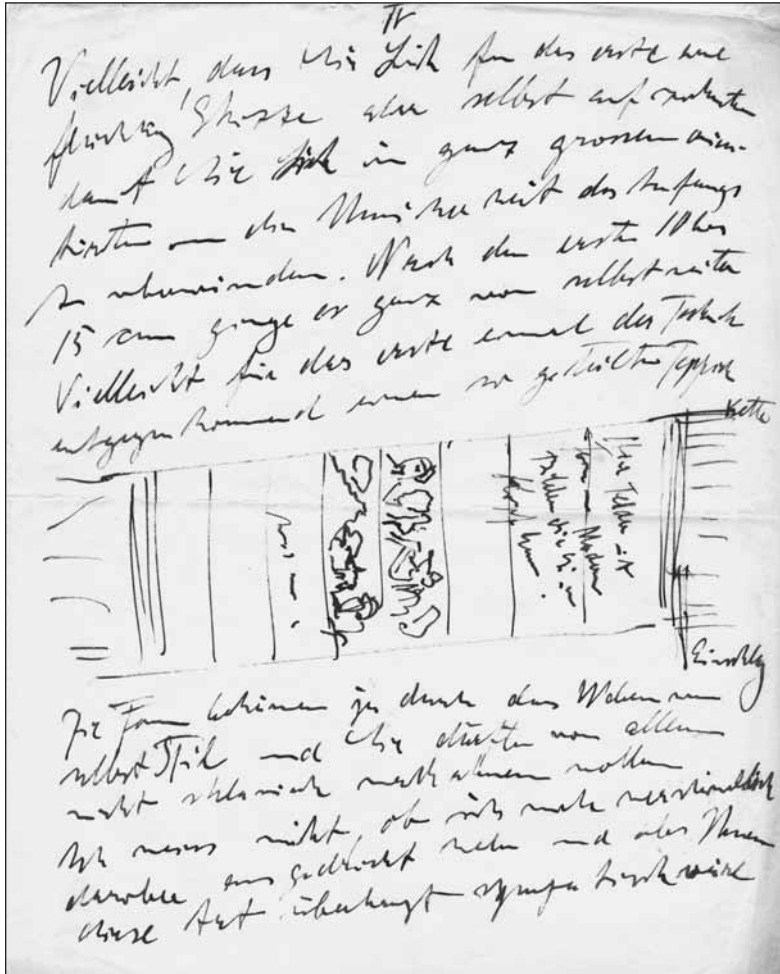 IV
Vielleicht, dass Sie Sich für das erste eine
flüchtige Skizze aber selbst aufzeichnen
damit Sie Sich in ganz grossen orien-
tierten um die Unsicherheit des Anfangs
zu überwinden. Nach den ersten 10 bis
15 cm ginge es ganz von selbst weiter
Vielleicht für das erste einmal der Technik
entgegenkommend einen so geteilten Teppich
Kette
Einschlag
Die Form bekämen ja durch das Weben von
selbst Stil und Sie dürften vor allem
nicht sklavisch nachahmen wollen
Ich weiss nicht, ob ich mich verständlich
darüber ausgedrückt habe und ob Ihnen
diese Art überhaupt sympatisch wäre